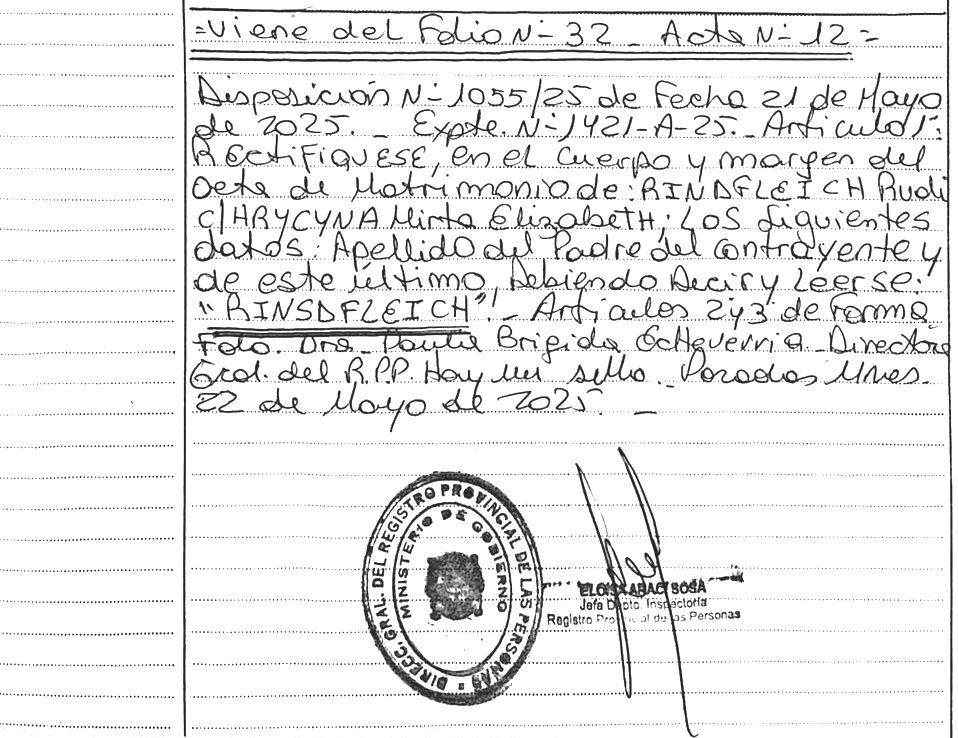 =Viene del Folio Nº 32 _ Acta Nº 12=
Disposición Nº 1055/25 de Fecha 21 de Mayo
de 2025._ Expte. Nº 1421-A-25._ Artículo 1º:
RECTIFIQUESE, en el cuerpo y margen del
acta de Matrimonio de: RINDFLEICH Rudi
C/ HRYCYNA Mirta ElizabetH; Los siguientes
datos: Apellido del Padre del contrayente y
de este último, Debiendo Decir y Leerse:
"RINSDFLEICH"._ Artículos 2 y 3 de Forma
Fdo. Dra. Paula Brigida EcHeverria_Directora
Gral. del R.P.P. Hay un sello._Posadas Mnes.
22 de Mayo de 2025._
DIRECC. GRAL. DEL REGISTRO PROVINCIAL DE LAS PERSONAS
MINISTERIO DE GOBIERNO
SOSA
Jefa Dpto. Inspectoría
Registro Provincial de las Personas